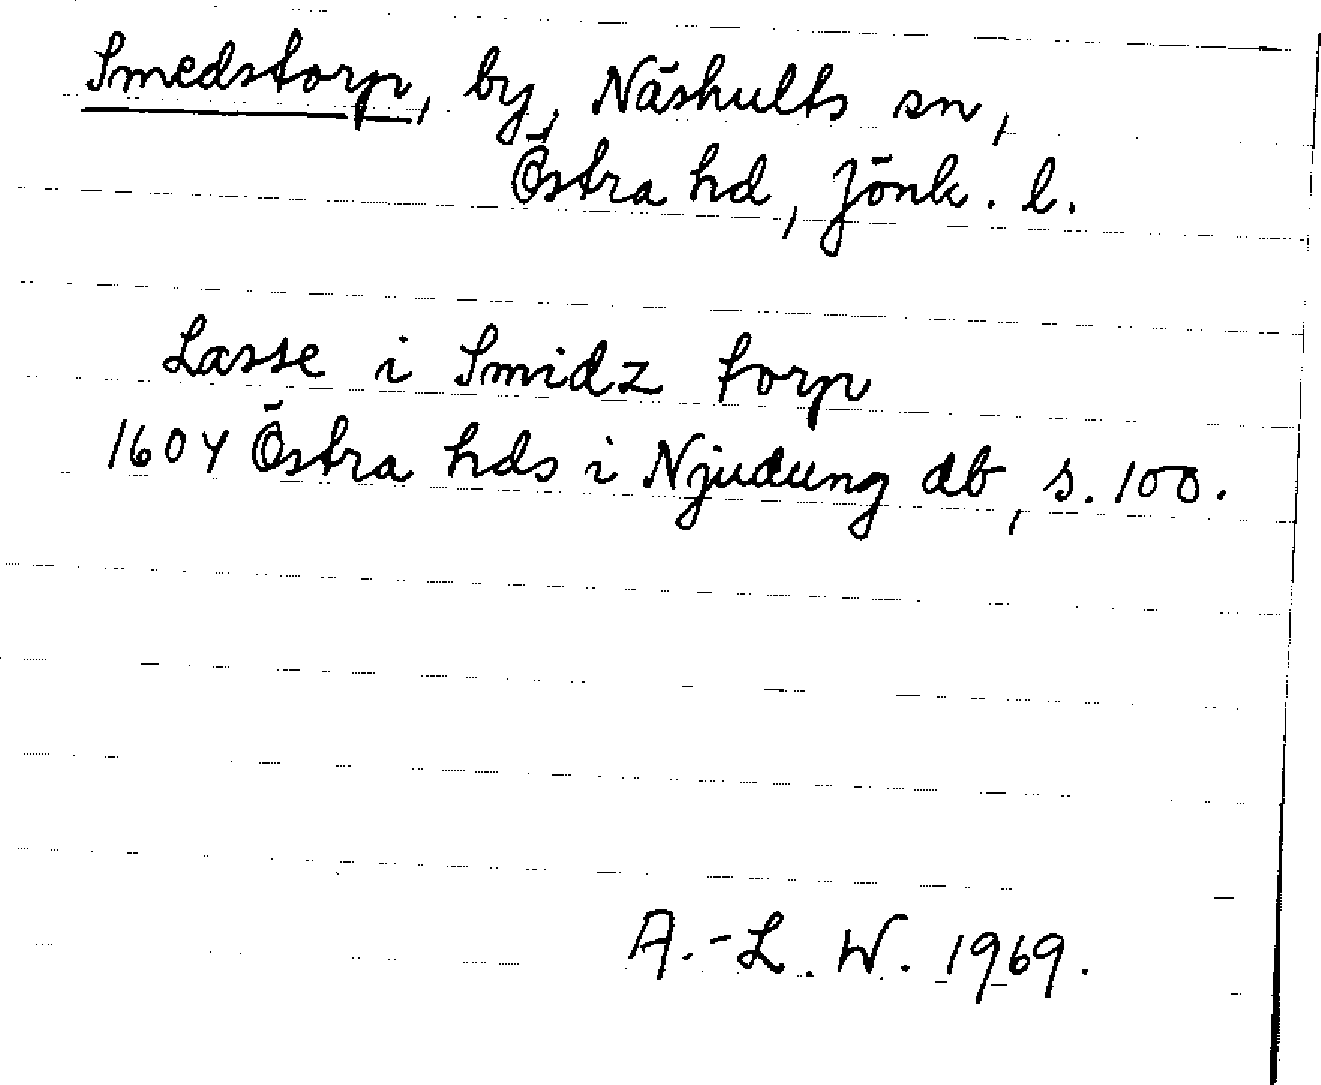 Smedstorp, by, Näshults sn,
Östra hd, Jönk. l.
Lasse i Smidz torp
1604 Östra hds i Njudung db, s. 100.
A.-L. W. 1969.